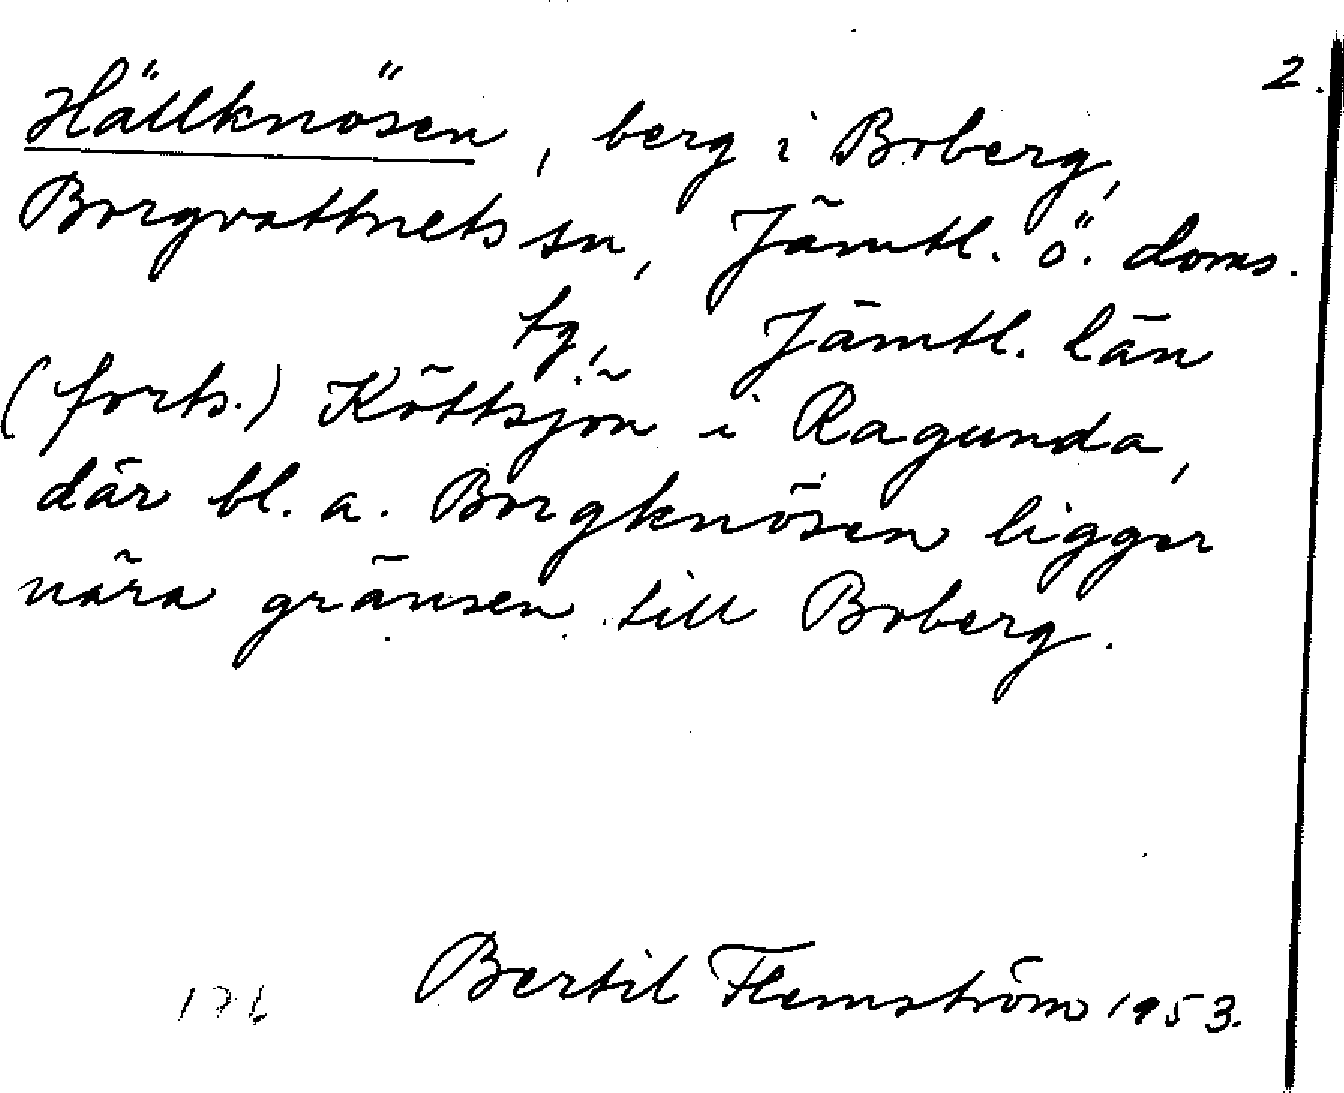 2.
Hällknösen, berg i Boberg,
Borgvattnets sn, Jämtl. ö. doms.
tg, Jämtl. län
(forts.) Köttsjön i Ragunda,
där bl. a. Borgknösen ligger
nära gränsen till Boberg.
Bertil Flemström 1953.
176